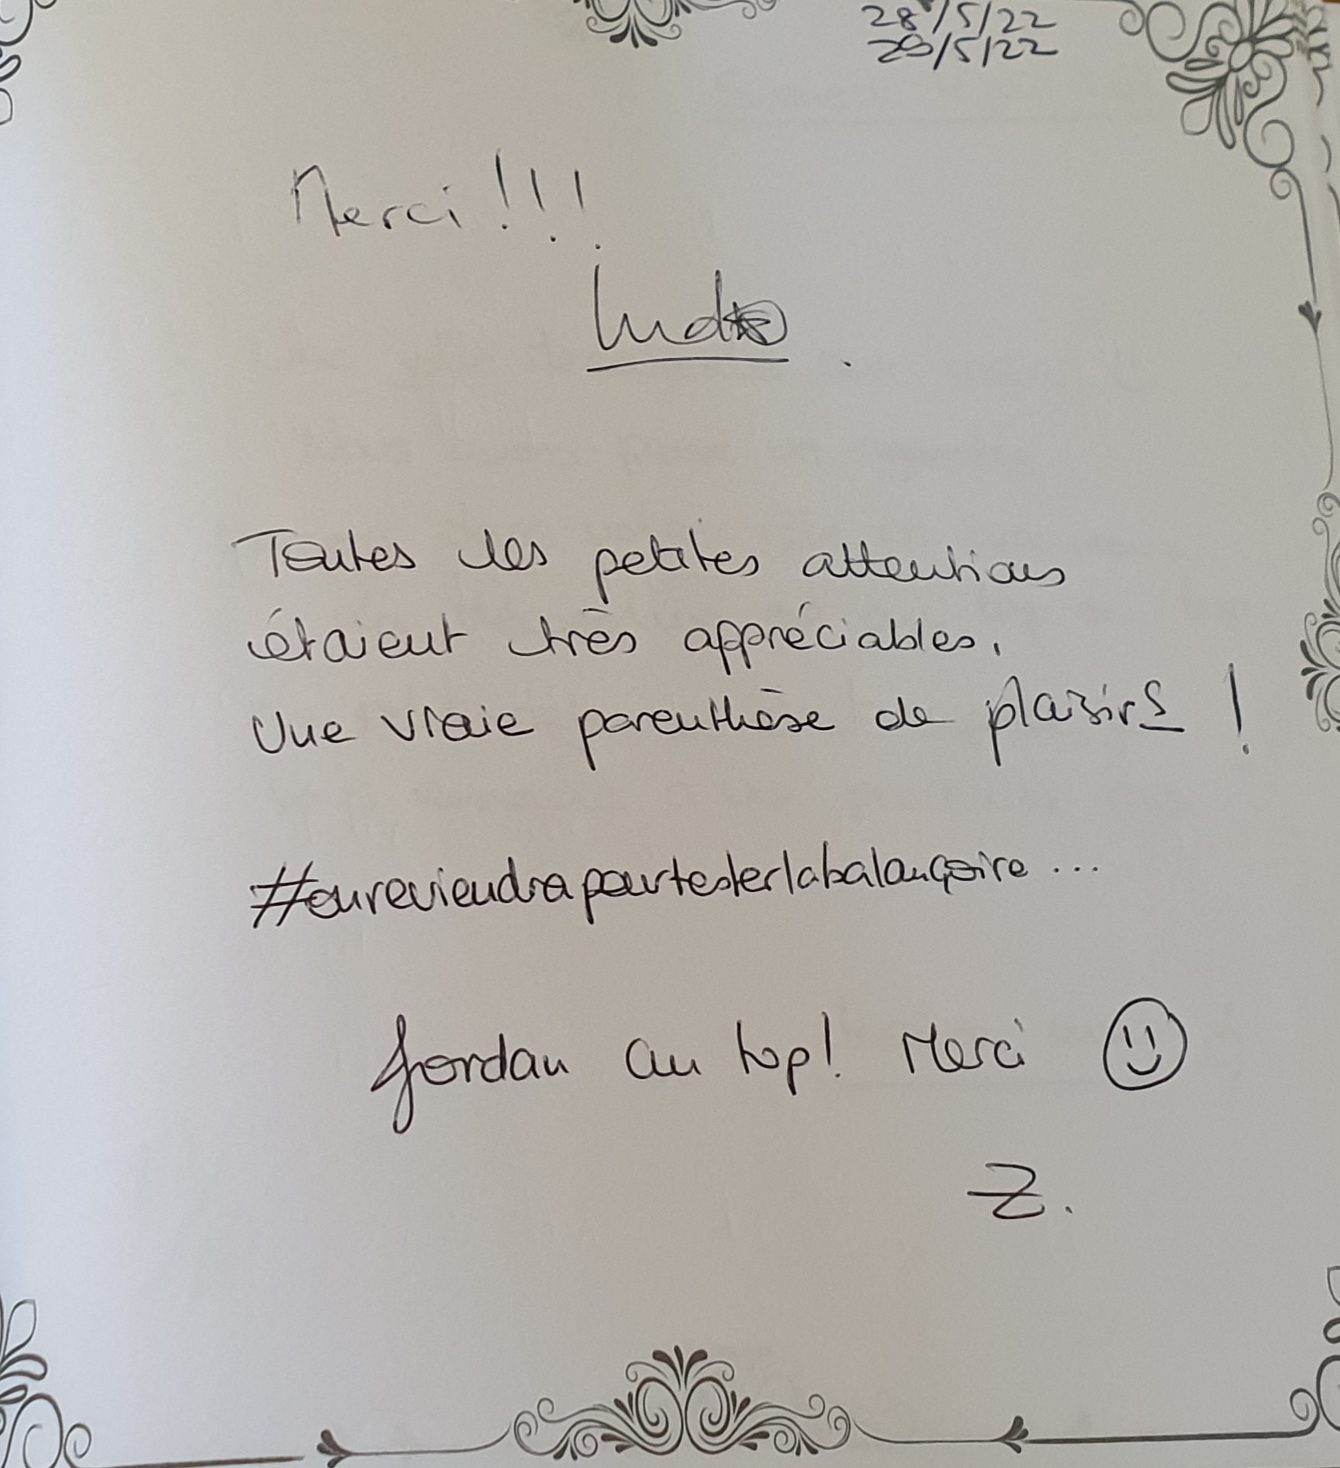 28/5/22
29/5/22
Merci !!!
Ludo
Toutes les petites attentions
étaient très appréciables.
Une vraie parenthèse de plaisirs !
#onreviendrapourtesterlabalançoire...
Jordan au top! Merci
Z.